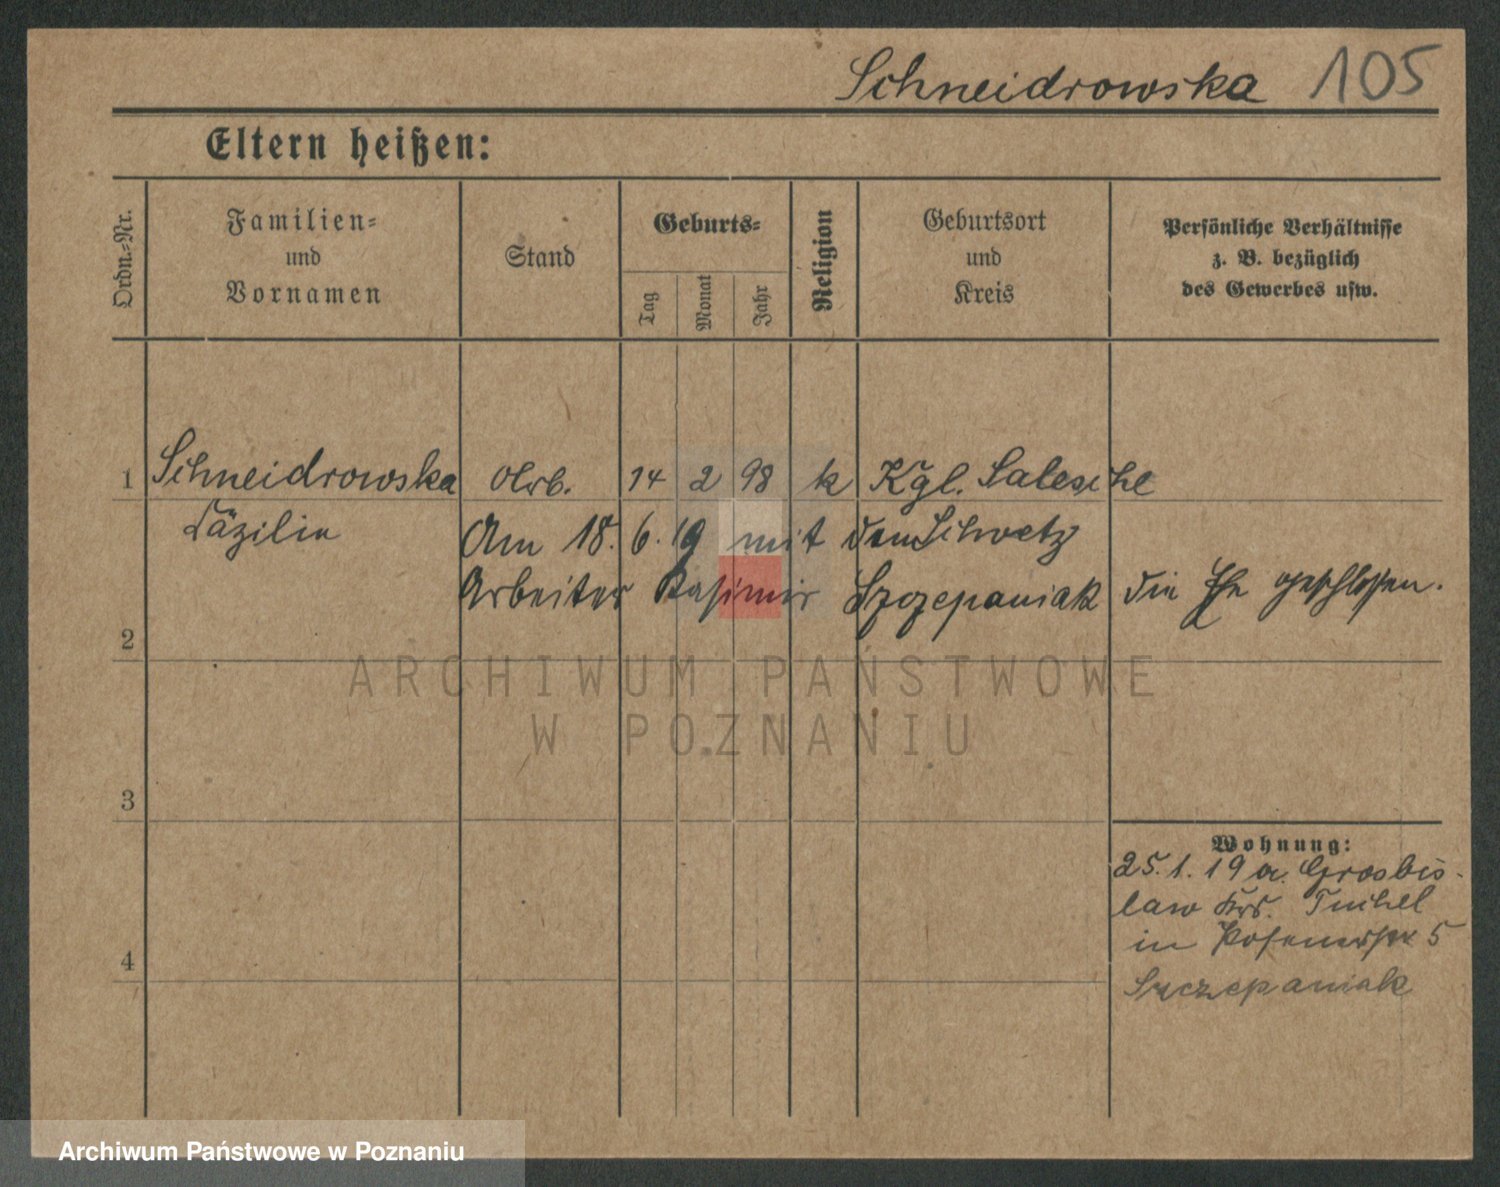 Schneidrowska 105
Eltern heißen:
Ordn.-Nr.
Familien-
und
Vornamen
Stand
Geburts-
Tag
Monat
Jahr
Religion
Geburtsort
und
Kreis
Persönliche Verhältnisse
z. B. bezüglich
des Gewerbes usw.
1 Schneidrowska Arb. 14 2 98 k Kgl. Salesche
Cäzilie Schwetz
Am 18. 6. 19 mit dem
Arbeiter Kasimir Szczepaniak die Ehe geschlossen.
2
3
4
Wohnung:
25.1.19 a. Grosbis-
law Krs. Tuchel
in Posenerstr 5
Szczepaniak
ARCHIWUM PAŃSTWOWE
W POZNANIU
Archiwum Państwowe w Poznaniu